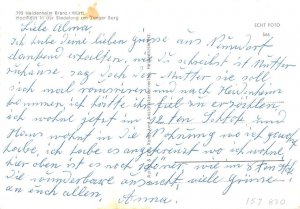 792 Heidenheim Brenz · Württ.
Hochhaus in der Siedlung am Zanger Berg
ECHT FOTO
Liebe Alma.
Ich habe deine lieben grüsse aus
dankend erhalten, wie du schreibst ist Mutter
zuhause, sag doch der Mutter sie soll
sich mal und nach Heidenheim
kommen, ich hätte ihr viel zu erzählen,
ich wohne jetzt im 12ten Schtok das
Haus wohnt in die Wohnung wo ich gewohnt
habe, ich habe es angekreuzt wo ich wohne
hier oben ist es noch schöner, wie im 8ten Stok
die wunderbare aussicht, viele grüsse
an euch allen. Anna.
157 830